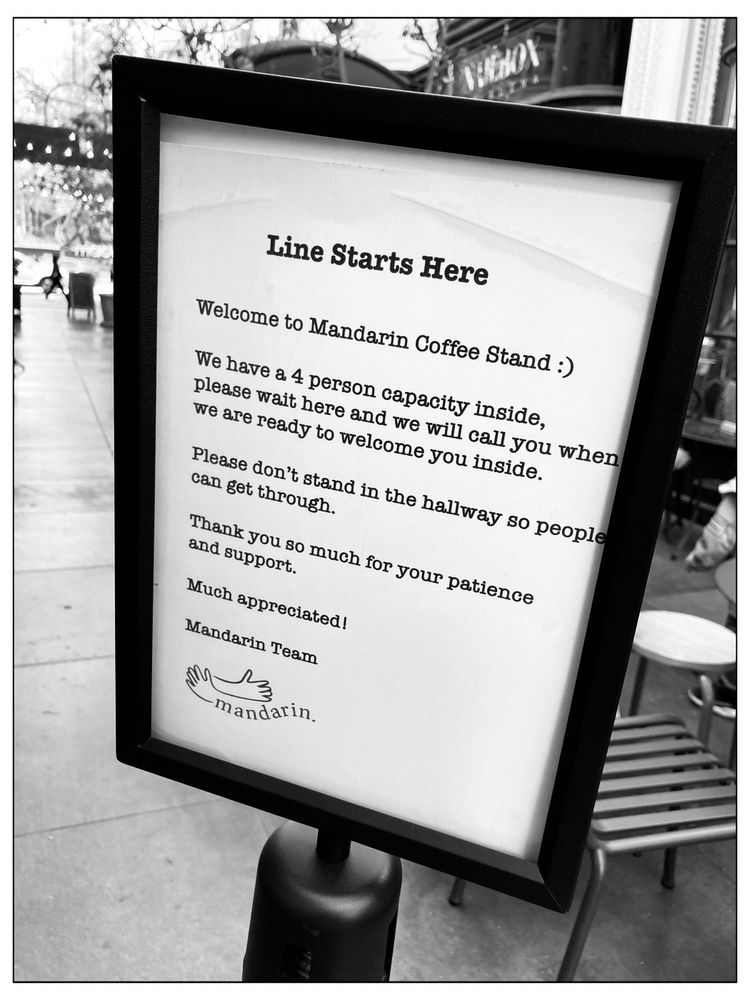 Line Starts Here
Welcome to Mandarin Coffee Stand :)
We have a 4 person capacity inside,
please wait here and we will call you when
we are ready to welcome you inside.
Please don't stand in the hallway so people
can get through.
Thank you so much for your patience
and support.
Much appreciated!
Mandarin Team
mandarin.